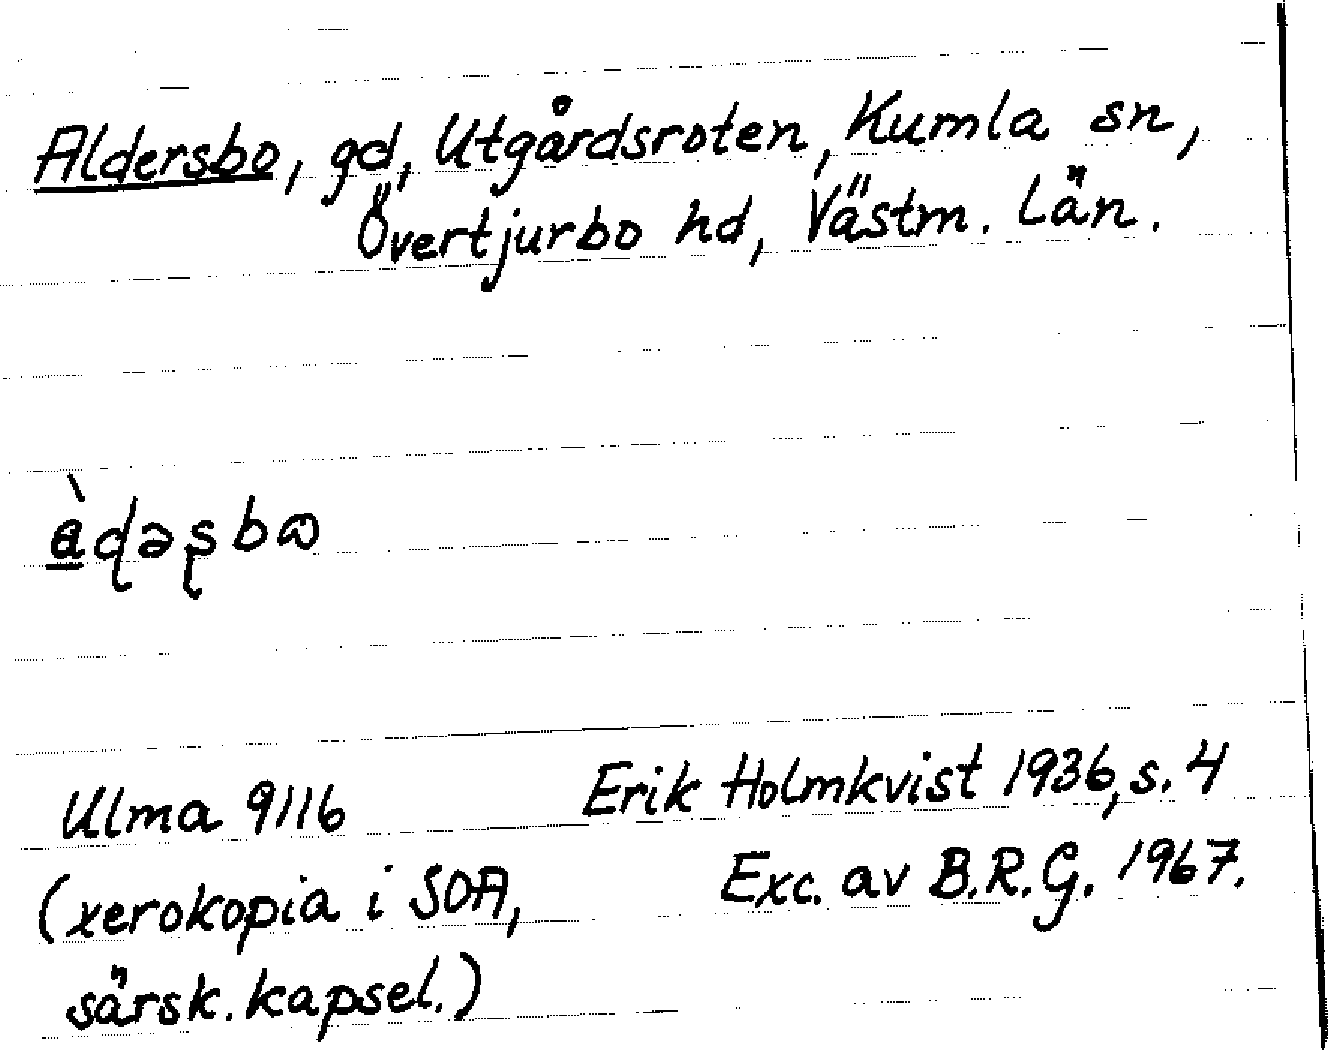 Aldersbo, gd, Utgårdsroten, Kumla sn,
Övertjurbo hd, Västm. län.
à̲ɖəʂbɷ
Ulma 9116 Erik Holmkvist 1936, s. 4
(xerokopia i SOA, Exc. av B.R.G. 1967.
särsk. kapsel.)